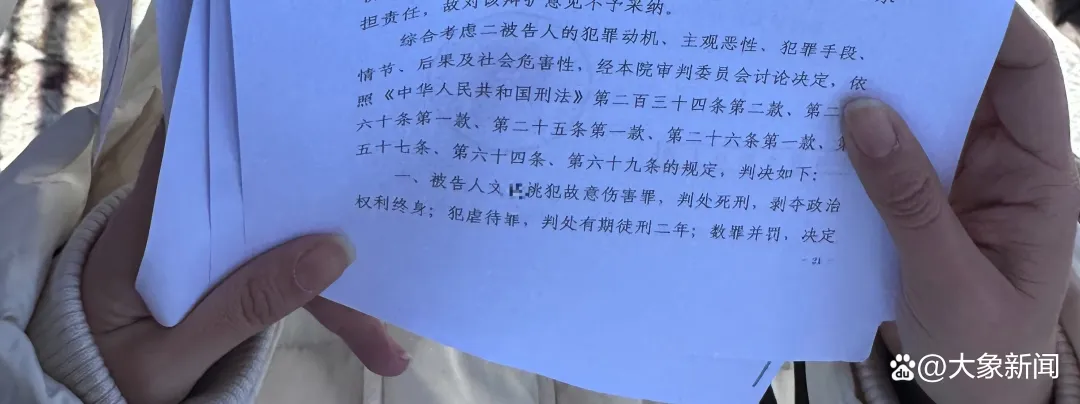 担责任，故对该辩护意见不予采纳。
综合考虑二被告人的犯罪动机、主观恶性、犯罪手段、
情节、后果及社会危害性，经本院审判委员会讨论决定，依
照《中华人民共和国刑法》第二百三十四条第二款、第二
六十条第一款、第二十五条第一款、第二十六条第一款、第
五十七条、第六十四条、第六十九条的规定，判决如下：
一、被告人文 挑犯故意伤害罪，判处死刑，剥夺政治
权利终身；犯虐待罪，判处有期徒刑二年；数罪并罚，决定
- 21
du @大象新闻